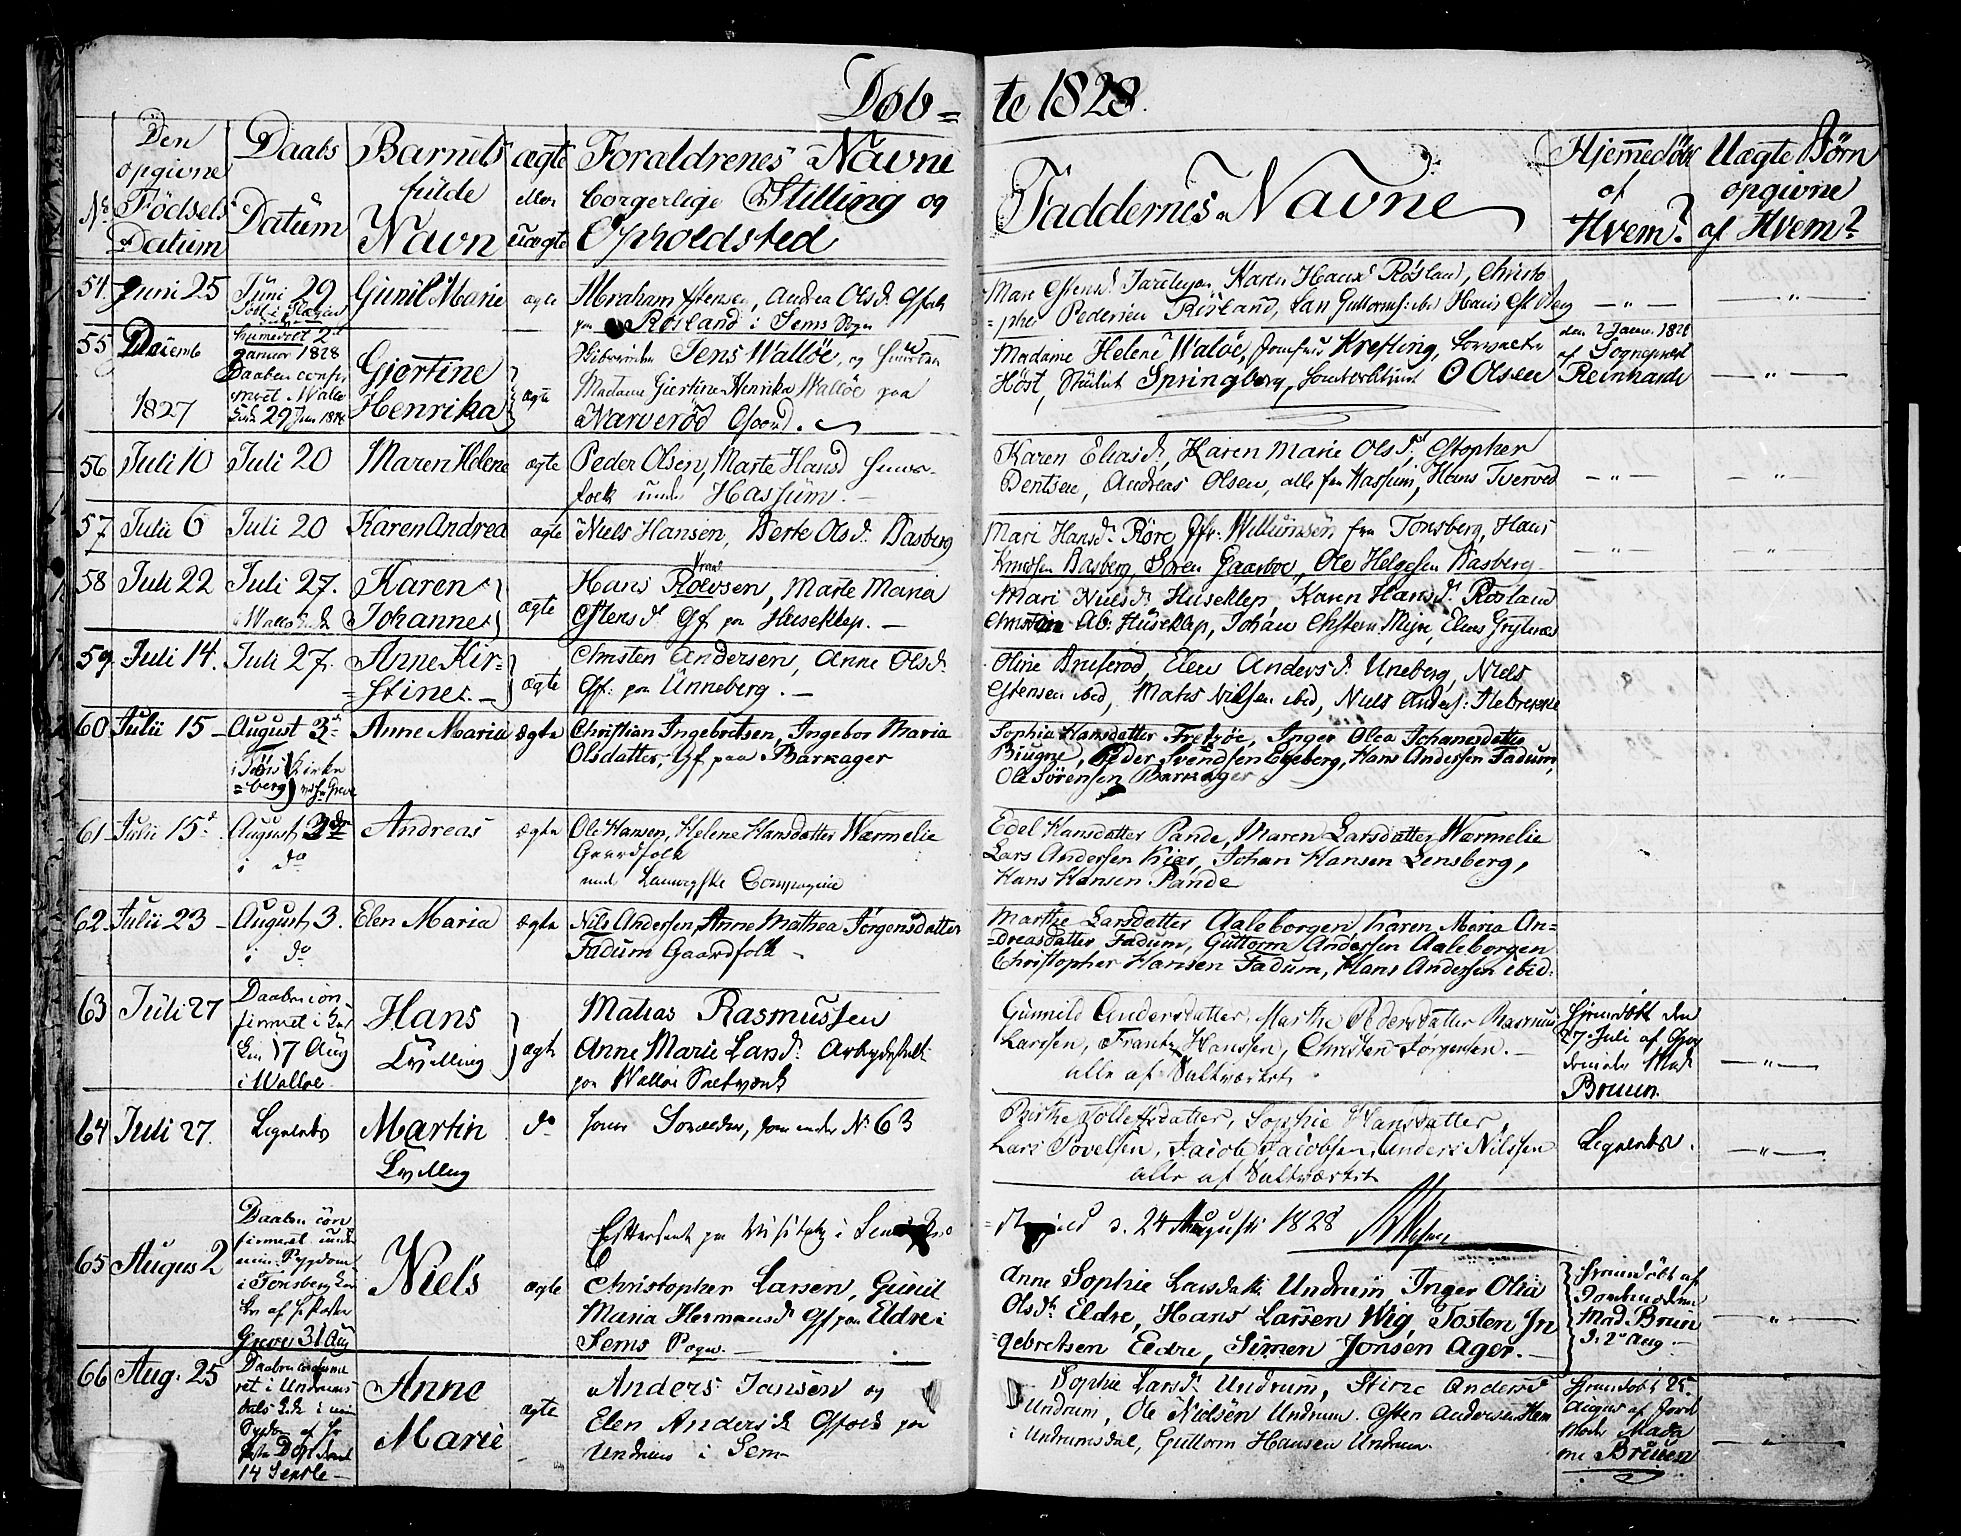 Døb=
te 1828.
Den opgivne Fødsels Datum
Nº
Daabs Datum
Barnets fulde Navn
ægte eller uægte
Forældrenes Navne
borgerlige Stilling og
Opholdsted
Faddernes Navne
Hjemmedøbt
af
Hvem?
Uægte Børn
opgivne
af Hvem?
54. Juni 25
Juni 29
Gunil Marie
ægte
Abraham Estensen, Andrea Olsd.
paa Røsland i Sems Sogn
Mari Estensd. Karen Hansd. Røsland, Christo
=pher Pedersen Røsland, Lars Guttormsen ibid Hans
55
Decemb
1827
Hjemmedøbt 2
Januar 1828
Daaben confir
meret
29 Jun
Gjertine
Henrika
ægte
Jens Walløe, og
Madame Giertine Henrika Walløe paa
Narverød
Madame Helene Waløe, Jomfrue Krefting,
Høst, Springberg, O Olsen
den 2 Januar 1828
af Sognepræst
Reinhardt
56 Juli 10
Juli 20
Maren Helene
ægte
Peder Olsen, Marte Hansd
folk under Hassum.
Karen Eliasd. Karen Marie Olsd. Estopher
Bentsen, Andreas Olsen, alle fra Hassum, Hans Tverved
57 Julii 6
Juli 20
Karen Andrea
ægte
Niels Hansen, Berte Olsd. Basberg
Mari Hansd. Røre, Willumsen fra Tønsberg, Hans
Knudsen Basberg, Søren Gaarboe, Ole Helgesen Basberg
58 Juli 22
Juli 27.
Karen
Johannes
ægte
Hans Roevsen, Marte Maria
Estensd. Gf paa Huseklep.
Mari Nielsd. Huseklep, Karen Hansd. Røsland
Christian Ab: Huseklep, Johan
59. Juli 14.
Juli 27.
Anne Kir=
=stine.
ægte
Christen Andersen, Anne Olsd.
Gf: paa Unneberg.
Oline Bruserød, Elen Andersd. Uneberg, Niels
Estensen ibid, Mats Nilsen ibid, Niels Anders:
60 Julii 15
August 3
i Tøns Kirke
=berg
Anne Maria
ægte
Christian Ingebretsen, Ingebor Maria
Olsdatter, Gf paa Barkager
Sophia Hansdatter Inger Olea Johanesdatter
Biugne, Peder Svendsen Egeberg, Hans Andersen Fadum,
Ole Sørensen Barkager
61 Julii 15
August 3
i do
Andreas
ægte
Ole Hansen, Helene Hansdatter Wærmelie
Gaardfolk
Compagnie
Edel Hansdatter Pande, Maren Larsdatter Wærmelie
Lars Andersen Kiær, Johan Hansen Lensberg,
Hans Hansen Pande
62. Julii 23
August 3.
i do
Elen Maria
ægte
Nils Andersen, Anne Mathea Jørgensdatter
Fadum Gaardfolk
Marthe Larsdatter Aaleborgen, Karen Maria An=
=dreasdatter Fadum, Guttorm Andersen Aaleborgen
Christopher Hansen Fadum, Hans Andersen ibid:
63 Juli 27
Daaben con
firmeret i
17 Aug
i Walløe
Hans
Tvilling
ægte
Matias Rasmussen
Anne Marie Larsd. Arbeidsfolk
paa Walløe Saltværk
Gunnild Andersdatter, Marthe Pedersdatter
Larssen, Frantz Hanssen, Christen Jørgensen.
alle af Saltværket
Hjemdøbt den
27 Juli af
Mad
Bruun.
64 Juli 27.
Ligeledes
Martin
Tvilling
do
samme Forældre, som under Nº 63
Birthe Tollefsdatter, Sophie Hansdatter,
Lars Povelsen, Jacob Jacobsen, Anders Nilssen
alle af Saltværket
Ligeledes.
Efterseet paa Visitats i Sem
d. 24 August 1828
65 Augus 2
Daaben con
firmeret
i Tønsberg
Greve 31 Aug
Niels
ægte
Christopher Larsen, Gunil
Maria Hermansd. Gf paa Eldre i
Sems Sogn.
Anne Sophie Larsdatter Undrum, Inger Olia
Olsdtr Eldre, Hans Larsen Wig, Tosten In
gebretsen Eldre, Simen Jonsen Ager.
Hjemdøbt af
Mad Bruun
d. 2 Aug
66 Aug. 25
i Undrums
dals
14 Septbr
Anne
Marie
ægte
Anders Jansen og
Elen Andersd. Gfolk paa
Undrum i Sem
Sophie Larsd. Undrum, Stine Andersd
Undrum, Ole Nielsen Undrum. Esten Andersen
i Undrumsdal, Guttorm Hansen Undrum
Hjemdøbt 25
August af Jord
moder Mada
me Bruuen